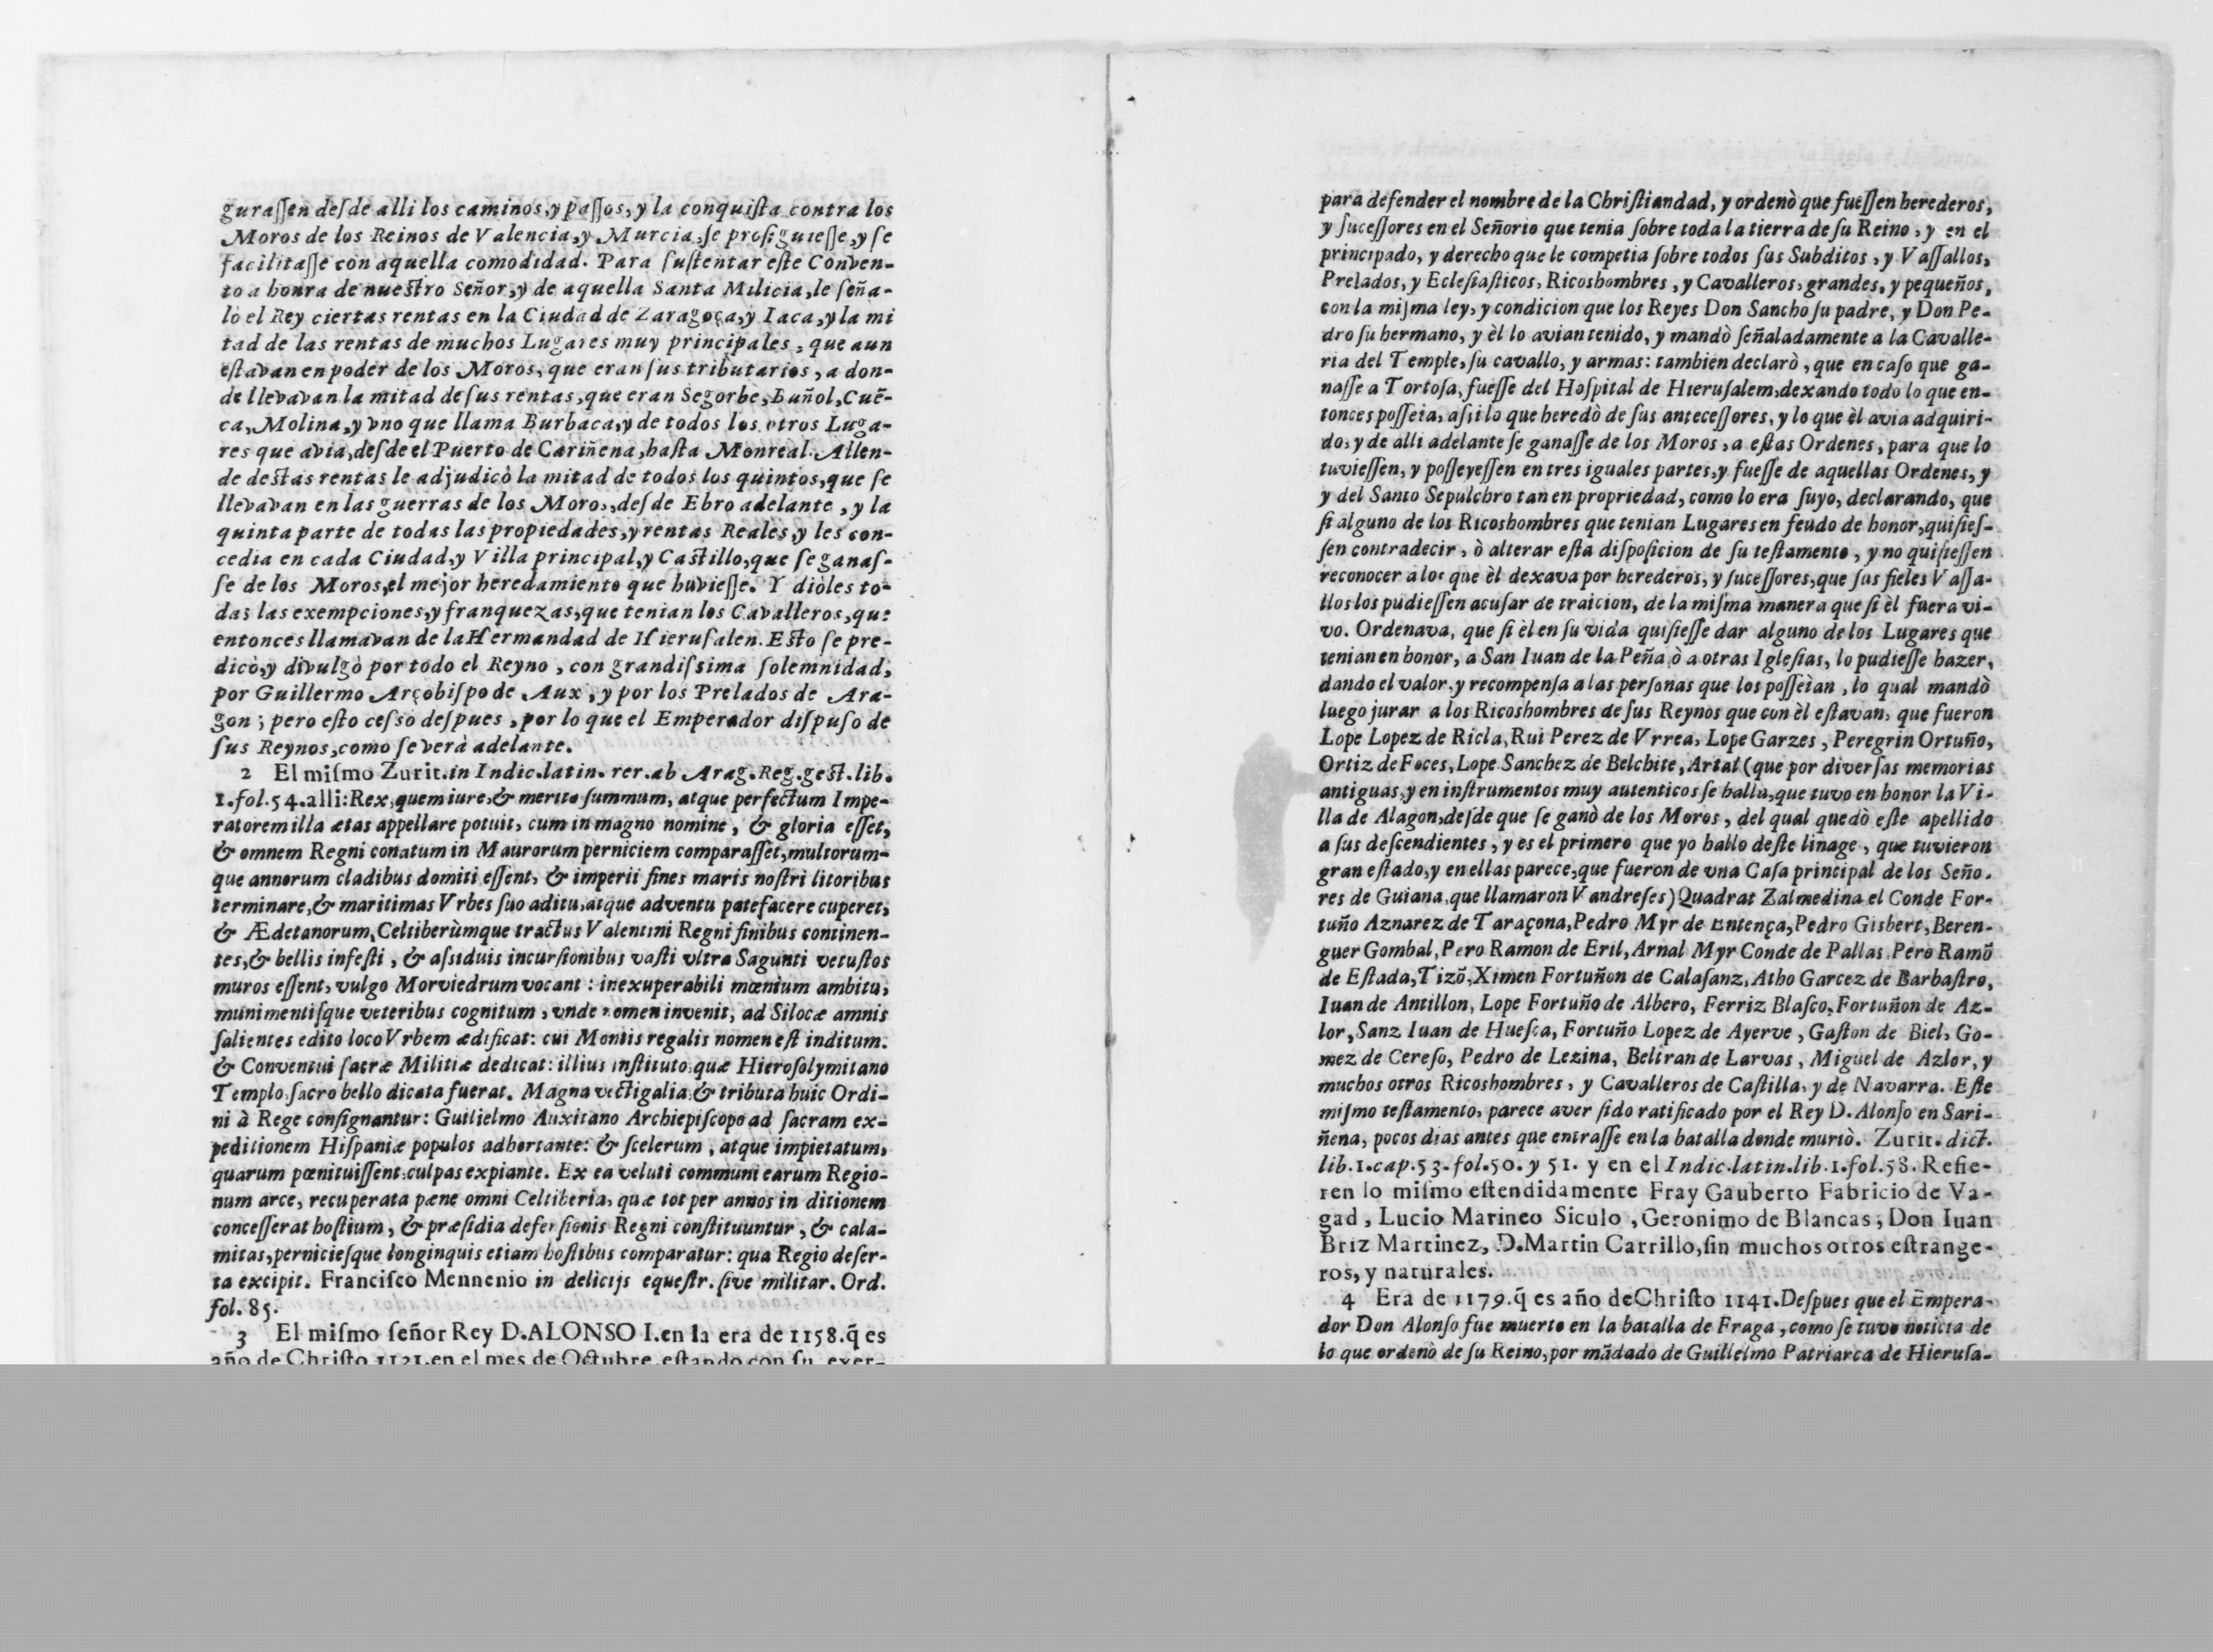 guraſſen deſde alli los caminos, y paſſos, y la conquiſta contra los
Moros de los Reinos de Valencia, y Murcia, ſe proſiguieſſe, y ſe
facilitaſſe con aquella comodidad. Para ſuſtentar eſte Conven-
to a honra de nueſtro Señor, y de aquella Santa Milicia, le ſeña-
lò el Rey ciertas rentas en la Ciudad de Zaragoça, y Iaca, y la mi
tad de las rentas de muchos Lugares muy principales, que aun
eſtavan en poder de los Moros, que eran ſus tributarios, a don-
de llevavan la mitad de ſus rentas, que eran Segorbe, Buñol, Cuẽ-
ca, Molina, y vno que llama Burbaca, y de todos los otros Luga-
res que avia, deſde el Puerto de Cariñena, haſta Monreal. Allen-
de deſtas rentas le adjudicò la mitad de todos los quintos, que ſe
llevavan en las guerras de los Moros, deſde Ebro adelante, y la
quinta parte de todas las propiedades, y rentas Reales, y les con-
cedia en cada Ciudad, y Villa principal, y Caſtillo, que ſe ganaſ-
ſe de los Moros, el mejor heredamiento que huvieſſe. Y dioles to-
das las exempciones, y franquezas, que tenian los Cavalleros, que
entonces llamavan de la Hermandad de Hieruſalen. Eſto ſe pre-
dicò, y divulgò por todo el Reyno, con grandiſsima ſolemnidad,
por Guillermo Arçobiſpo de Aux, y por los Prelados de Ara-
gon; pero eſto ceſsò deſpues, por lo que el Emperador diſpuſo de
ſus Reynos, como ſe verà adelante.
2 El miſmo Zurit. in Indic. latin. rer. ab Arag. Reg. geſt. lib.
1. fol. 54. alli: Rex, quem iure, & merito ſummum, atque perfectum Impe-
ratorem illa ætas appellare potuit, cum in magno nomine, & gloria eſſet,
& omnem Regni conatum in Maurorum perniciem comparaſſet, multorum-
que annorum cladibus domiti eſſent, & imperii fines maris noſtri litoribus
terminare, & maritimas Vrbes ſuo aditu, atque adventu patefacere cuperet,
& Ædetanorum, Celtiberùmque tractus Valentini Regni finibus continen-
tes, & bellis infeſti, & aſsiduis incurſionibus vaſti vltra Sagunti vetuſtos
muros eſſent, vulgo Morviedrum vocant: inexuperabili mœnium ambitu,
munimentiſque veteribus cognitum, vnde nomen invenit, ad Silocæ amnis
ſalientes edito loco Vrbem ædificat: cui Montis regalis nomen eſt inditum.
& Conventui ſacræ Militiæ dedicat: illius inſtituto, quæ Hieroſolymitano
Templo, ſacro bello dicata fuerat. Magna vectigalia, & tributa huic Ordi-
ni à Rege conſignantur: Guilielmo Auxitano Archiepiſcopo ad ſacram ex-
peditionem Hiſpaniæ populos adhortante: & ſcelerum, atque impietatum,
quarum pœnituiſſent, culpas expiante. Ex ea veluti communi earum Regio-
num arce, recuperata pæne omni Celtiberia, quæ tot per annos in ditionem
conceſſerat hoſtium, & præſidia defenſionis Regni conſtituuntur, & cala-
mitas, pernicieſque longinquis etiam hoſtibus comparatur: qua Regio deſer-
ta excipit. Franciſco Mennenio in delicijs equeſtr. ſive militar. Ord.
fol. 85.
3 El miſmo ſeñor Rey D. ALONSO I. en la era de 1158. q̃ es
año de Chriſto 1121. en el mes de Octubre, eſtando con ſu exer-
para defender el nombre de la Chriſtiandad, y ordenò que fueſſen herederos,
y ſuceſſores en el Señorio que tenia ſobre toda la tierra de ſu Reino, y en el
principado, y derecho que le competia ſobre todos ſus Subditos, y Vaſſallos,
Prelados, y Ecleſiaſticos, Ricoshombres, y Cavalleros, grandes, y pequeños,
con la miſma ley, y condicion que los Reyes Don Sancho ſu padre, y Don Pe-
dro ſu hermano, y èl lo avian tenido, y mandò ſeñaladamente a la Cavalle-
ria del Temple, ſu cavallo, y armas: tambien declarò, que en caſo que ga-
naſſe a Tortoſa, fueſſe del Hoſpital de Hieruſalem, dexando todo lo que en-
tonces poſſeia, aſsi lo que heredò de ſus anteceſſores, y lo que èl avia adquiri-
do, y de alli adelante ſe ganaſſe de los Moros, a eſtas Ordenes, para que lo
tuvieſſen, y poſſeyeſſen en tres iguales partes, y fueſſe de aquellas Ordenes, y
y del Santo Sepulchro tan en propriedad, como lo era ſuyo, declarando, que
ſi alguno de los Ricoshombres que tenian Lugares en feudo de honor, quiſieſ-
ſen contradecir, ò alterar eſta diſpoſicion de ſu teſtamento, y no quiſieſſen
reconocer a los que èl dexava por herederos, y ſuceſſores, que ſus fieles Vaſſa-
llos los pudieſſen acuſar de traicion, de la miſma manera que ſi èl fuera vi-
vo. Ordenava, que ſi èl en ſu vida quiſieſſe dar alguno de los Lugares que
tenian en honor, a San Iuan de la Peña, ò a otras Igleſias, lo pudieſſe hazer,
dando el valor, y recompenſa a las perſonas que los poſſeìan, lo qual mandò
luego jurar a los Ricoshombres de ſus Reynos que con èl eſtavan, que fueron
Lope Lopez de Ricla, Rui Perez de Vrrea, Lope Garzes, Peregrin Ortuño,
Ortiz de Foces, Lope Sanchez de Belchite, Artal (que por diverſas memorias
antiguas, y en inſtrumentos muy autenticos ſe halla, que tuvo en honor la Vi-
lla de Alagon, deſde que ſe ganò de los Moros, del qual quedò eſte apellido
a ſus deſcendientes, y es el primero que yo hallo deſte linage, que tuvieron
gran eſtado, y en ellas parece, que fueron de vna Caſa principal de los Seño.
res de Guiana, que llamaron Vandreſes) Quadrat Zalmedina, el Conde For-
tuño Aznarez de Taraçona, Pedro Myr de Entença, Pedro Gisbert, Beren-
guer Gombal, Pero Ramon de Eril, Arnal Myr Conde de Pallas, Pero Ramõ
de Eſtada, Tizõ, Ximen Fortuñon de Calaſanz, Atho Garcez de Barbaſtro,
Iuan de Antillon, Lope Fortuño de Albero, Ferriz Blaſco, Fortuñon de Az-
lor, Sanz Iuan de Hueſca, Fortuño Lopez de Ayerve, Gaſton de Biel, Go-
mez de Cereſo, Pedro de Lezina, Beltran de Larvas, Miguel de Azlor, y
muchos otros Ricoshombres, y Cavalleros de Caſtilla, y de Navarra. Eſte
miſmo teſtamento, parece aver ſido ratificado por el Rey D. Alonſo en Sari-
ñena, pocos dias antes que entraſſe en la batalla donde muriò. Zurit. dict.
lib. 1. cap. 53. fol. 50. y 51. y en el Indic. latin. lib. 1. fol. 58. Refie-
ren lo miſmo eſtendidamente Fray Gauberto Fabricio de Va-
gad, Lucio Marineo Siculo, Geronimo de Blancas, Don Iuan
Briz Martinez, D. Martin Carrillo, ſin muchos otros eſtrange-
ros, y naturales.
4 Era de 1179. q̃ es año de Chriſto 1141. Deſpues que el Empera-
dor Don Alonſo fue muerto en la batalla de Fraga, como ſe tuvo noticia de
lo que ordenò de ſu Reino, por mãdado de Guillelmo Patriarca de Hieruſa-